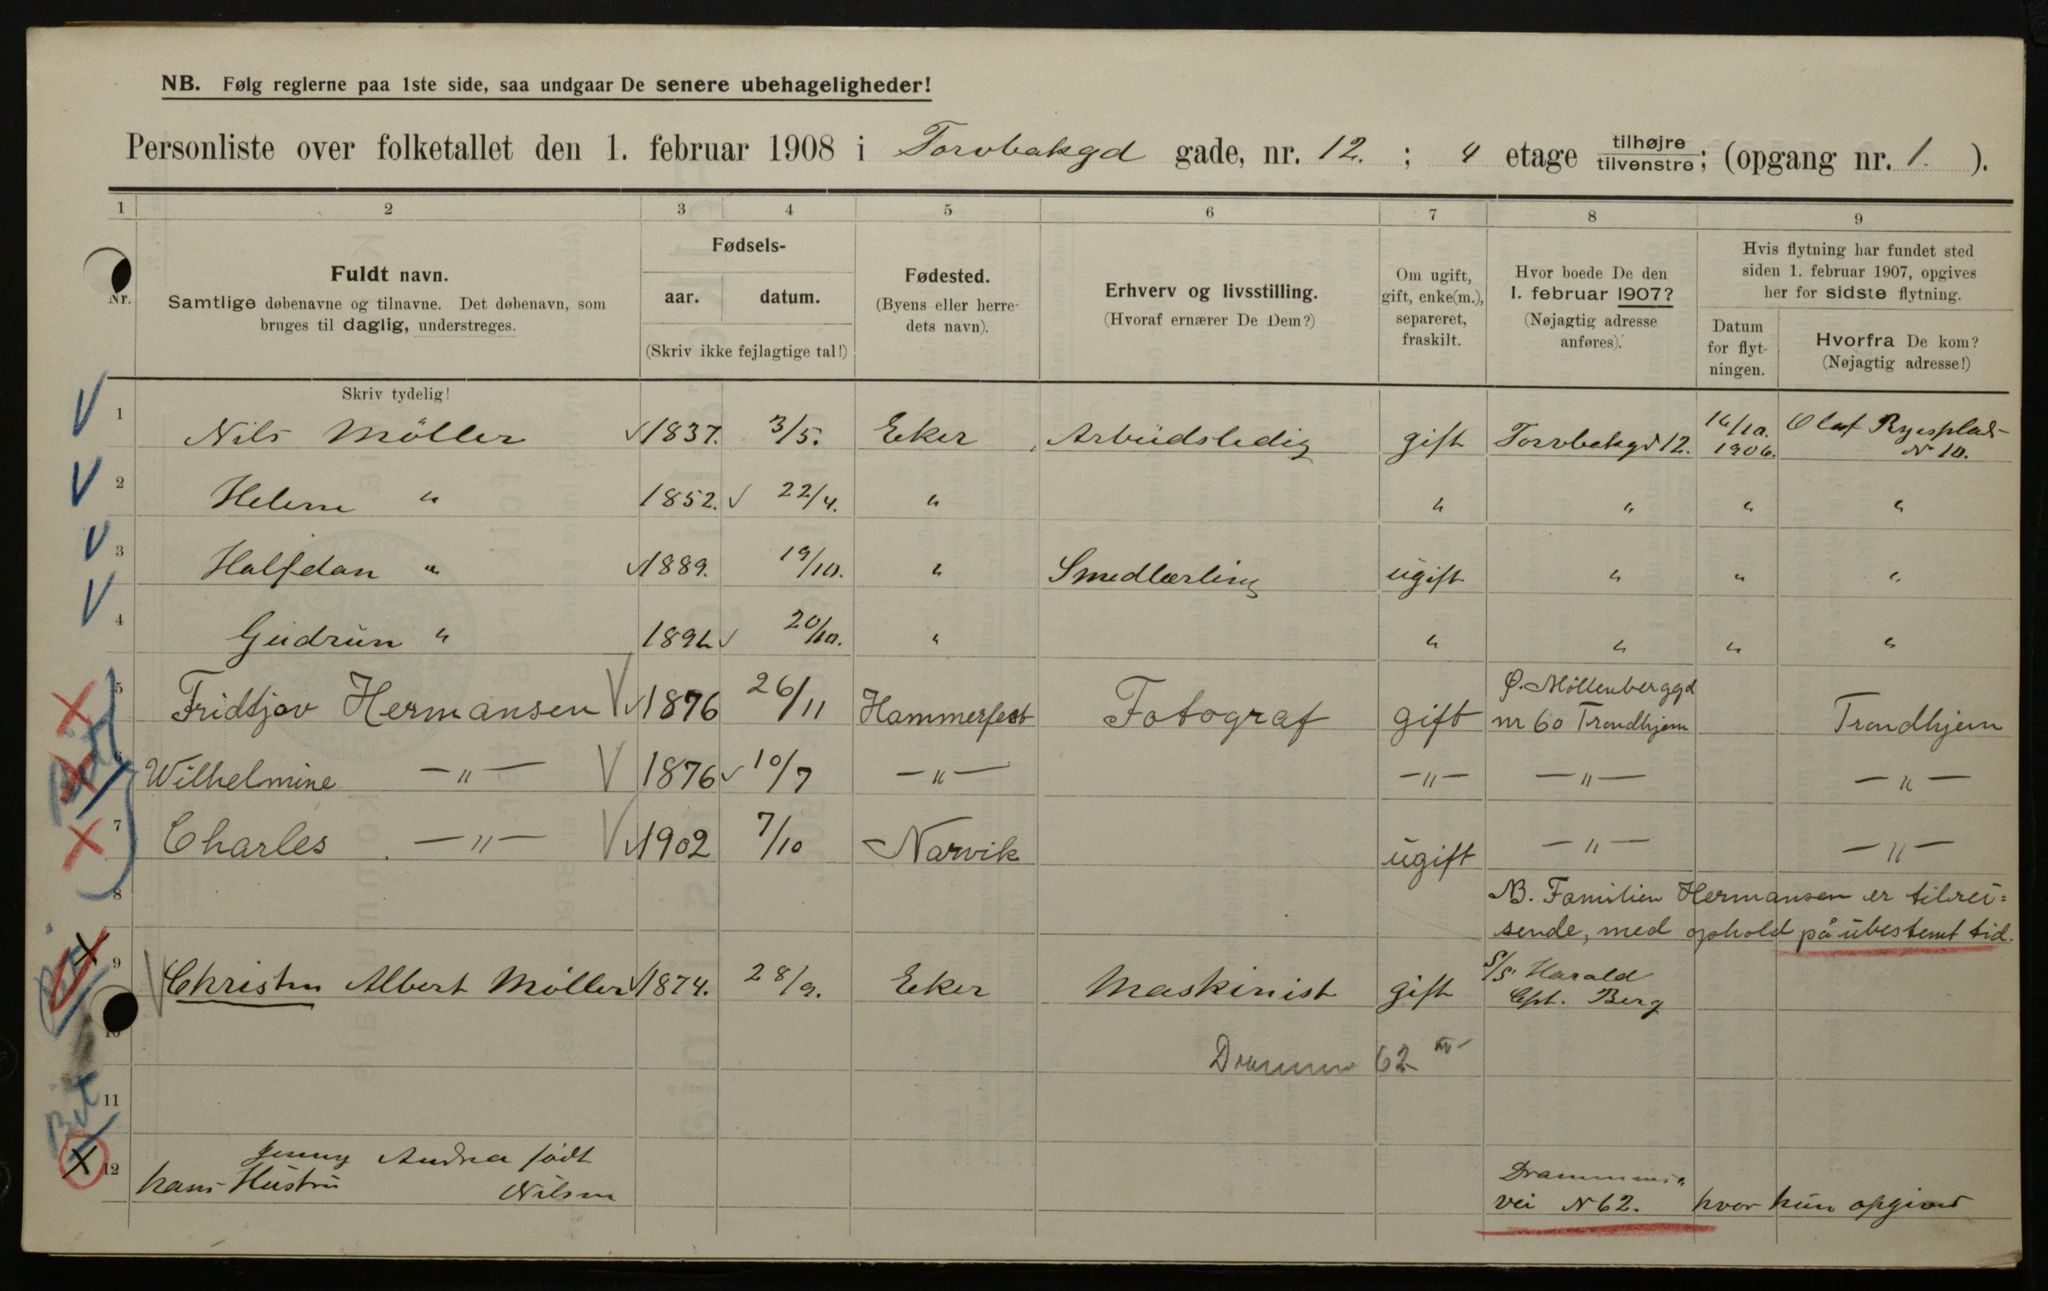 NB. Følg reglerne paa 1ste side, saa undgaar De senere ubehageligheder!
Personliste over folketallet den 1. februar 1908 i Torvbakgd gade, nr. 12. ; 4 etage tilhøjre tilvenstre; (opgang nr. 1. ).
1 2 3 4 5 6 7 8 9
Nr.
Fuldt navn.
Samtlige døbenavne og tilnavne. Det døbenavn, som
bruges til daglig, understreges.
Fødsels-
aar. datum.
(Skriv ikke fejlagtige tal!)
Fødested.
(Byens eller herre-
dets navn).
Erhverv og livsstilling.
(Hvoraf ernærer De Dem?)
Om ugift,
gift, enke(m.),
separeret,
fraskilt.
Hvor boede De den
1. februar 1907?
(Nøjagtig adresse
anføres).
Hvis flytning har fundet sted
siden 1. februar 1907, opgives
her for sidste flytning.
Datum
for flyt-
ningen.
Hvorfra De kom?
(Nøjagtig adresse!)
Skriv tydelig!
1 Nils Möller 1837. 3/5. Eker Arbeidsledig gift Torvbakgd 12. 16/10. 1906. Olaf Ryesplads N 10.
2 Helene " 1852. 22/4. " " " " "
3 Halfdan " 1889. 19/10. " Smedlærling ugift " " "
4 Gudrun " 1892 20/10. " " " " "
5 Fridtjov Hermansen 1876 26/11 Hammerfest Fotograf gift Ø. Möllenberggd nr 60 Trondhjem Trondhjem
6 Wilhelmine —"— 1876 10/7 —"— —"— —"— —"—
7 Charles —"— 1902 7/10 Narvik ugift —"— —"—
8 NB. Familien Hermansen er tilrei=
sende, med ophold på ubestemt tid.
9 Christen Albert Möller 1874. 28/9. Eker Maskinist gift S/S Harald
Cpt. Berg
10 62
11
12 Jenny Andrea født
hans Hustru Nilsen
vei N 62. hvor hun opgives